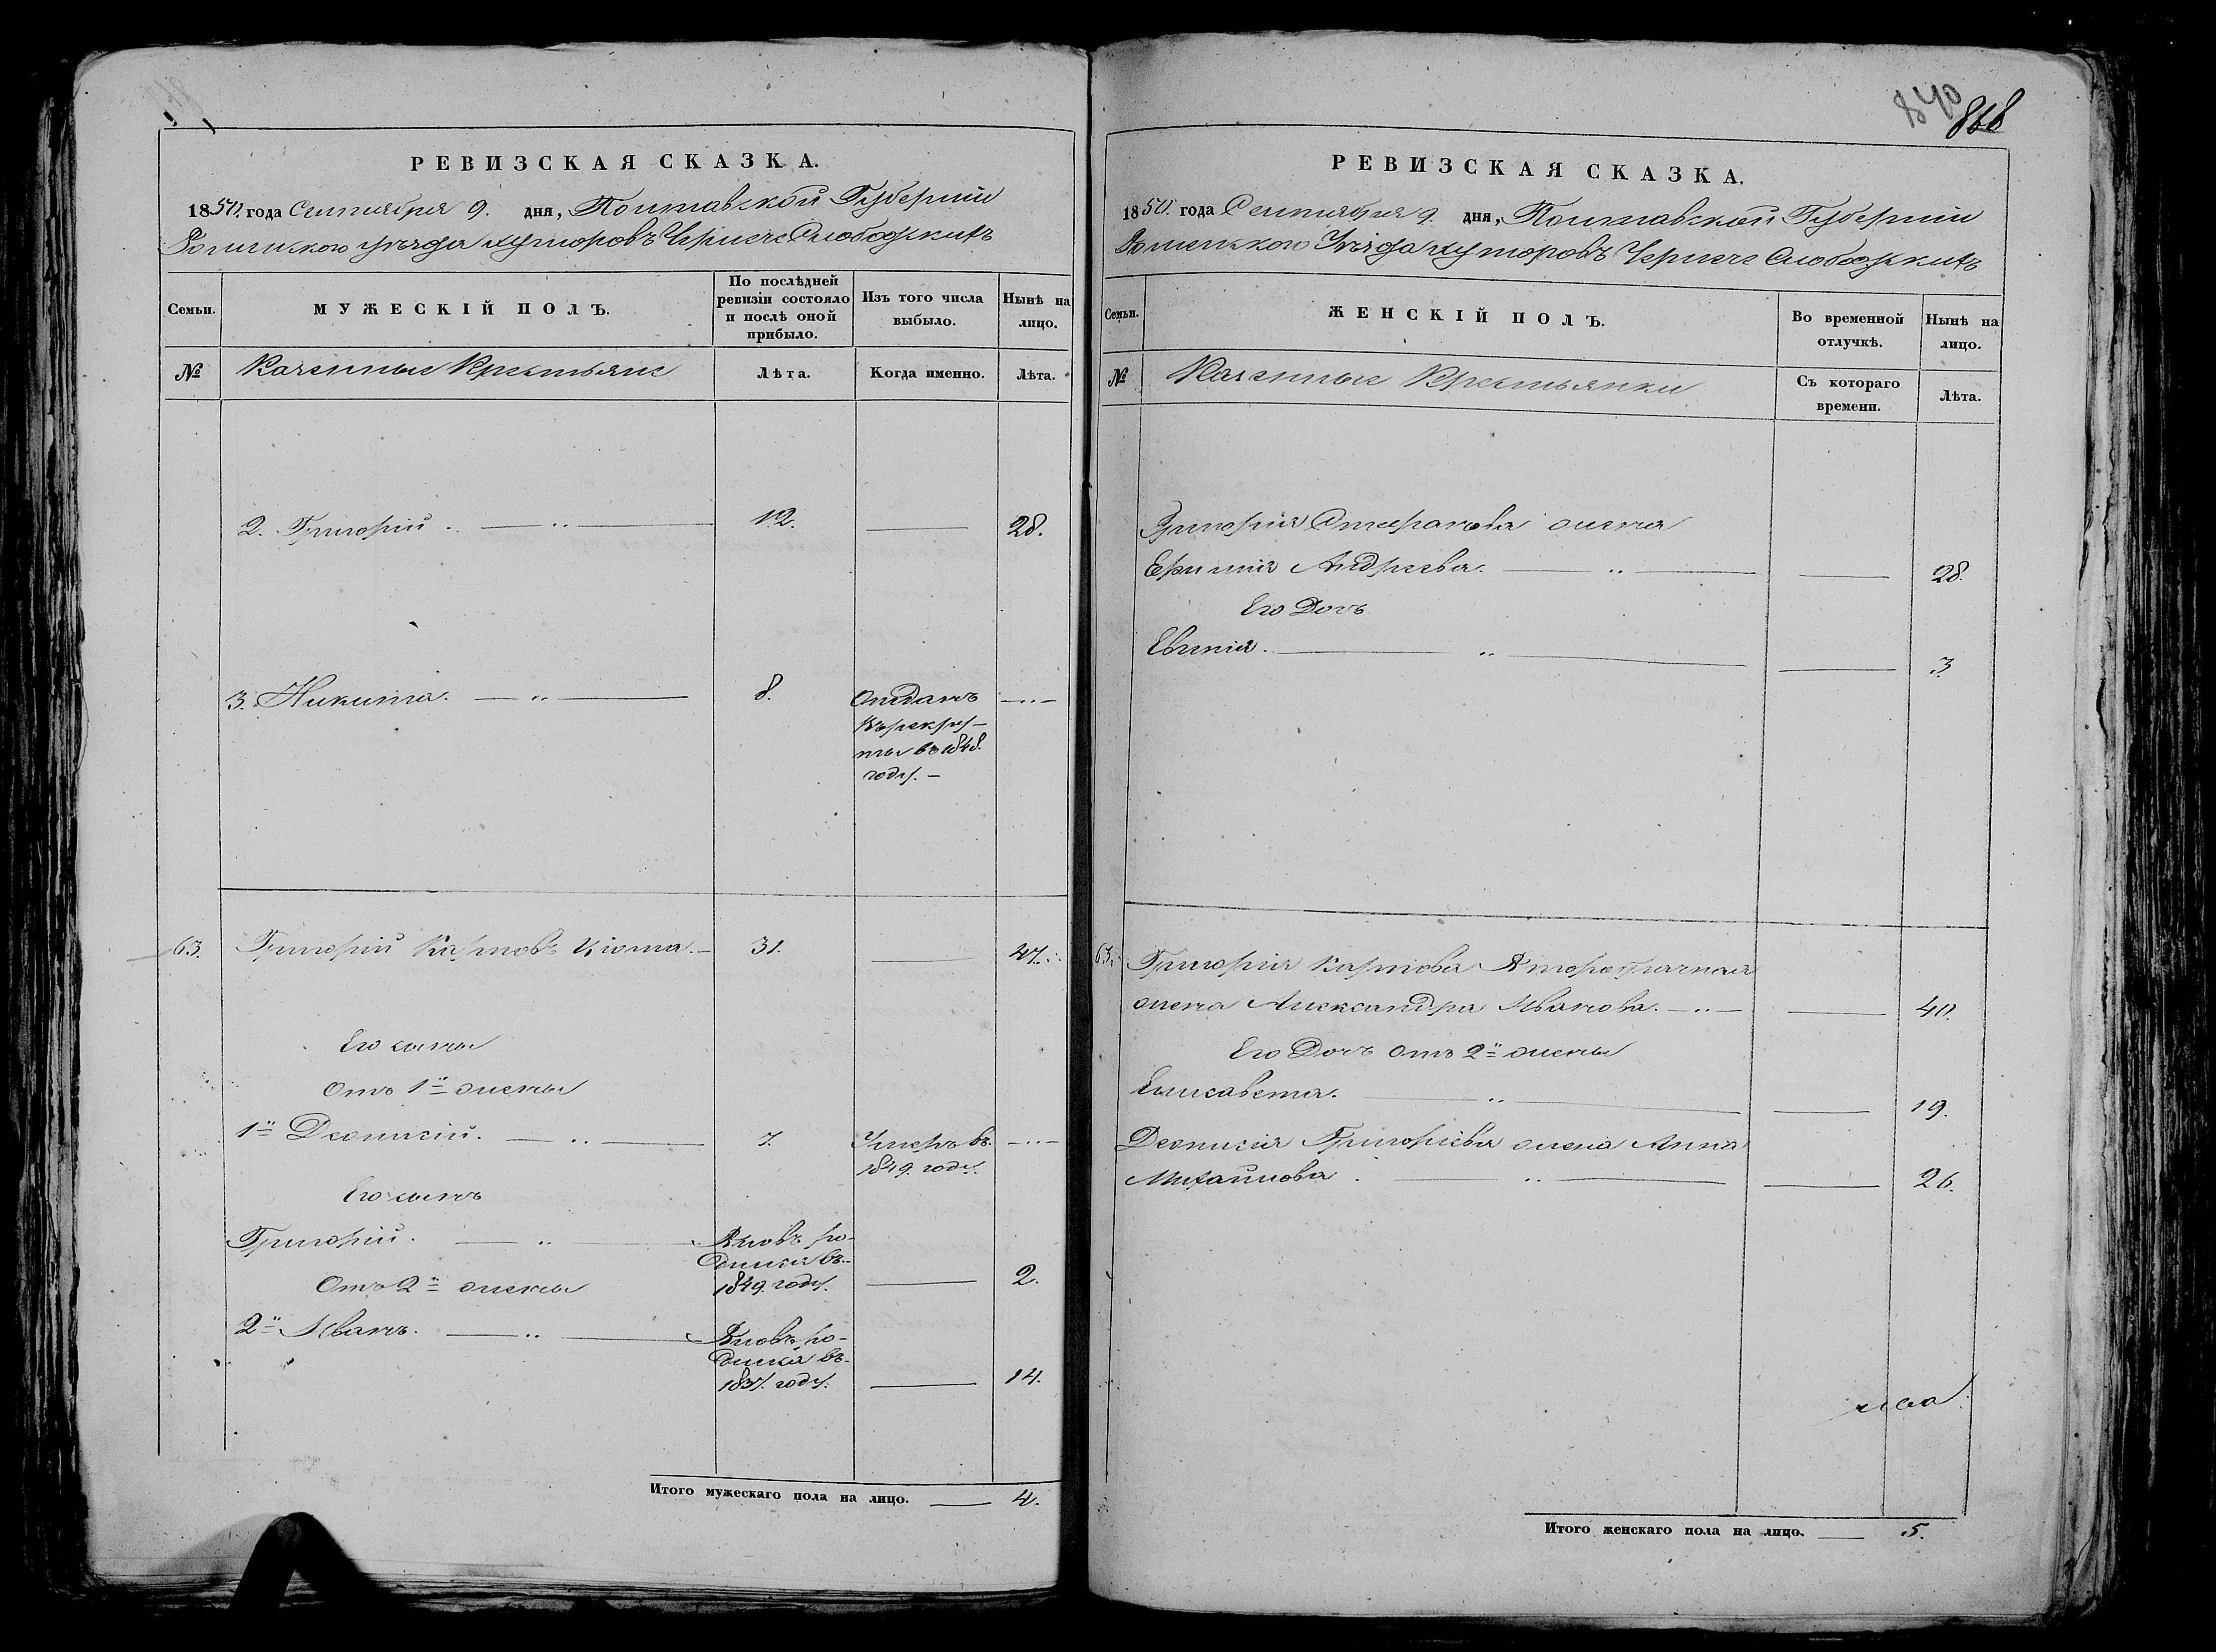 840
868
РЕВИЗСКАЯ СКАЗКА.
1850. года Сентября 9. дня, Полтавской Губерніи
Роменского уѣзда хуторовъ Чернече Слободскихъ
Семьи.
МУЖЕСКІЙ ПОЛЪ.
По послѣдней
ревизіи состояло
и послѣ оной
прибыло.
Изъ того числа
выбыло.
Нынѣ на
лицо.
№
Казенные Крестьяне
Лѣта.
Когда именно.
Лѣта.
2. Григорій . — „ — 12. — 28.
3. Никита. — „ — 8. Отданъ — „ —
въ рекру-
ты въ 1848.
году. —
63. Григорій Карповъ — 31. — 47.
Его сыны
Отъ 1й жены
1й Деонисій. — „ — 7. Умеръ въ — „ —
1849. году.
Его сынъ
Григорій. — „ — Вновь ро-
дился въ
1849. году. — 2.
Отъ 2й жены
2й Иванъ. — „ — Вновь ро-
дился въ
1837. году. — 14.
Итого мужескаго пола на лицо. — 4.
РЕВИЗСКАЯ СКАЗКА.
1850. года Сентября 9. дня, Полтавской Губерніи
Роменского Уѣзда хуторовъ Чернече Слободскихъ
Семьи.
ЖЕНСКІЙ ПОЛЪ.
Во временной
отлучкѣ.
Нынѣ на
лицо.
№
Казенные Крестьянки
Съ котораго
времени.
Лѣта.
Григорія Стефанова жена
Ефимія Андреева. — „ — — 28.
Его Дочь
Евгенія. — „ — — 3
63. Григорія Карпова Второбрачная
жена Александра Иванова. — „ — — 40.
Его Дочь отъ 2й жены
Елисавета. — „ — — 19.
Деонисія Григоріева жена Анна
Михайлова . — „ — — 26.
Итого женскаго пола на лицо. — 5.